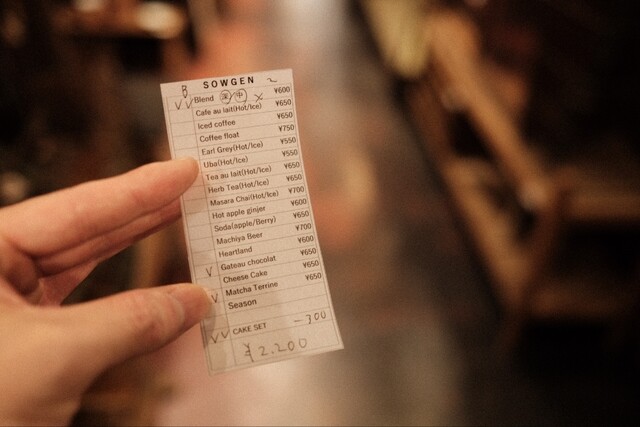 B SOWGEN
VV Blend 深/中 ¥600
Cafe au lait(Hot/Ice) ¥650
Iced coffee ¥650
Coffee float ¥750
Earl Grey(Hot/Ice) ¥550
Uba(Hot/Ice) ¥550
Tea au lait(Hot/Ice) ¥650
Herb Tea(Hot/Ice) ¥650
Masara Chai(Hot/Ice) ¥700
Hot apple ginjer ¥600
Soda(apple/Berry) ¥650
Machiya Beer ¥700
Heartland ¥600
V Gateau chocolat ¥650
Cheese Cake ¥650
V Matcha Terrine ¥650
Season
VV CAKE SET -300
¥2.200